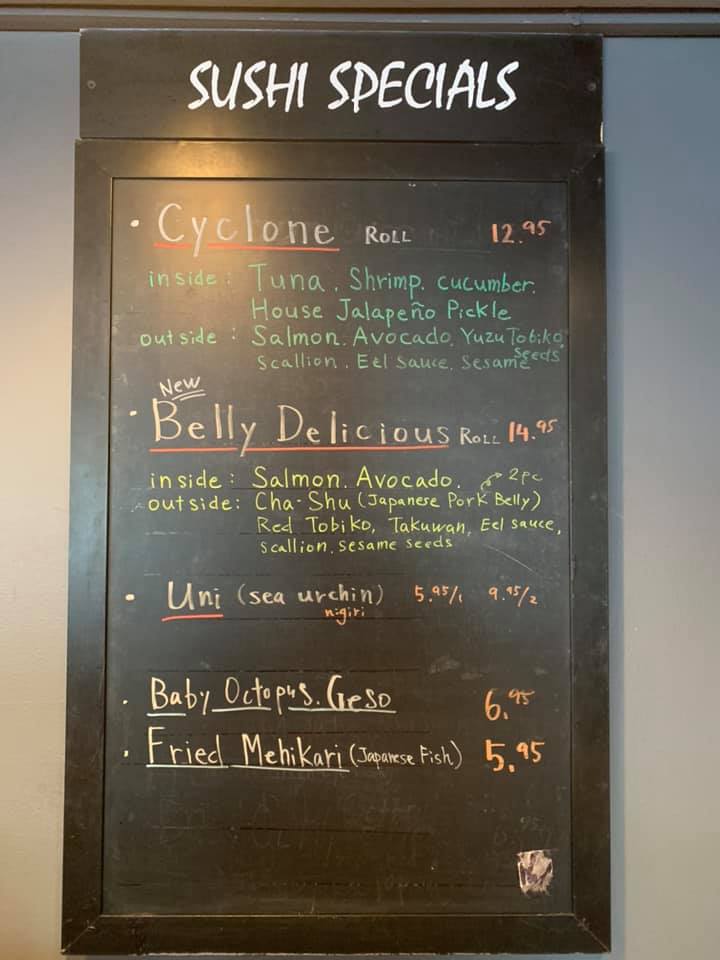 SUSHI SPECIALS
· Cyclone ROLL 12.95
inside: Tuna. Shrimp. cucumber.
House Jalapeño Pickle
outside: Salmon. Avocado. Yuzu Tobiko.
scallion. Eel sauce. sesame seeds
New
· Belly Delicious ROLL 14.95
inside: Salmon. Avocado. 2pc
outside: Cha-Shu (Japanese Pork Belly)
Red Tobiko, Takuwan, Eel sauce,
scallion, sesame seeds
· Uni (sea urchin) 5.95/1 9.95/2
nigiri
· Baby Octopus. Geso 6.95
· Fried Mehikari (Japanese Fish) 5.95